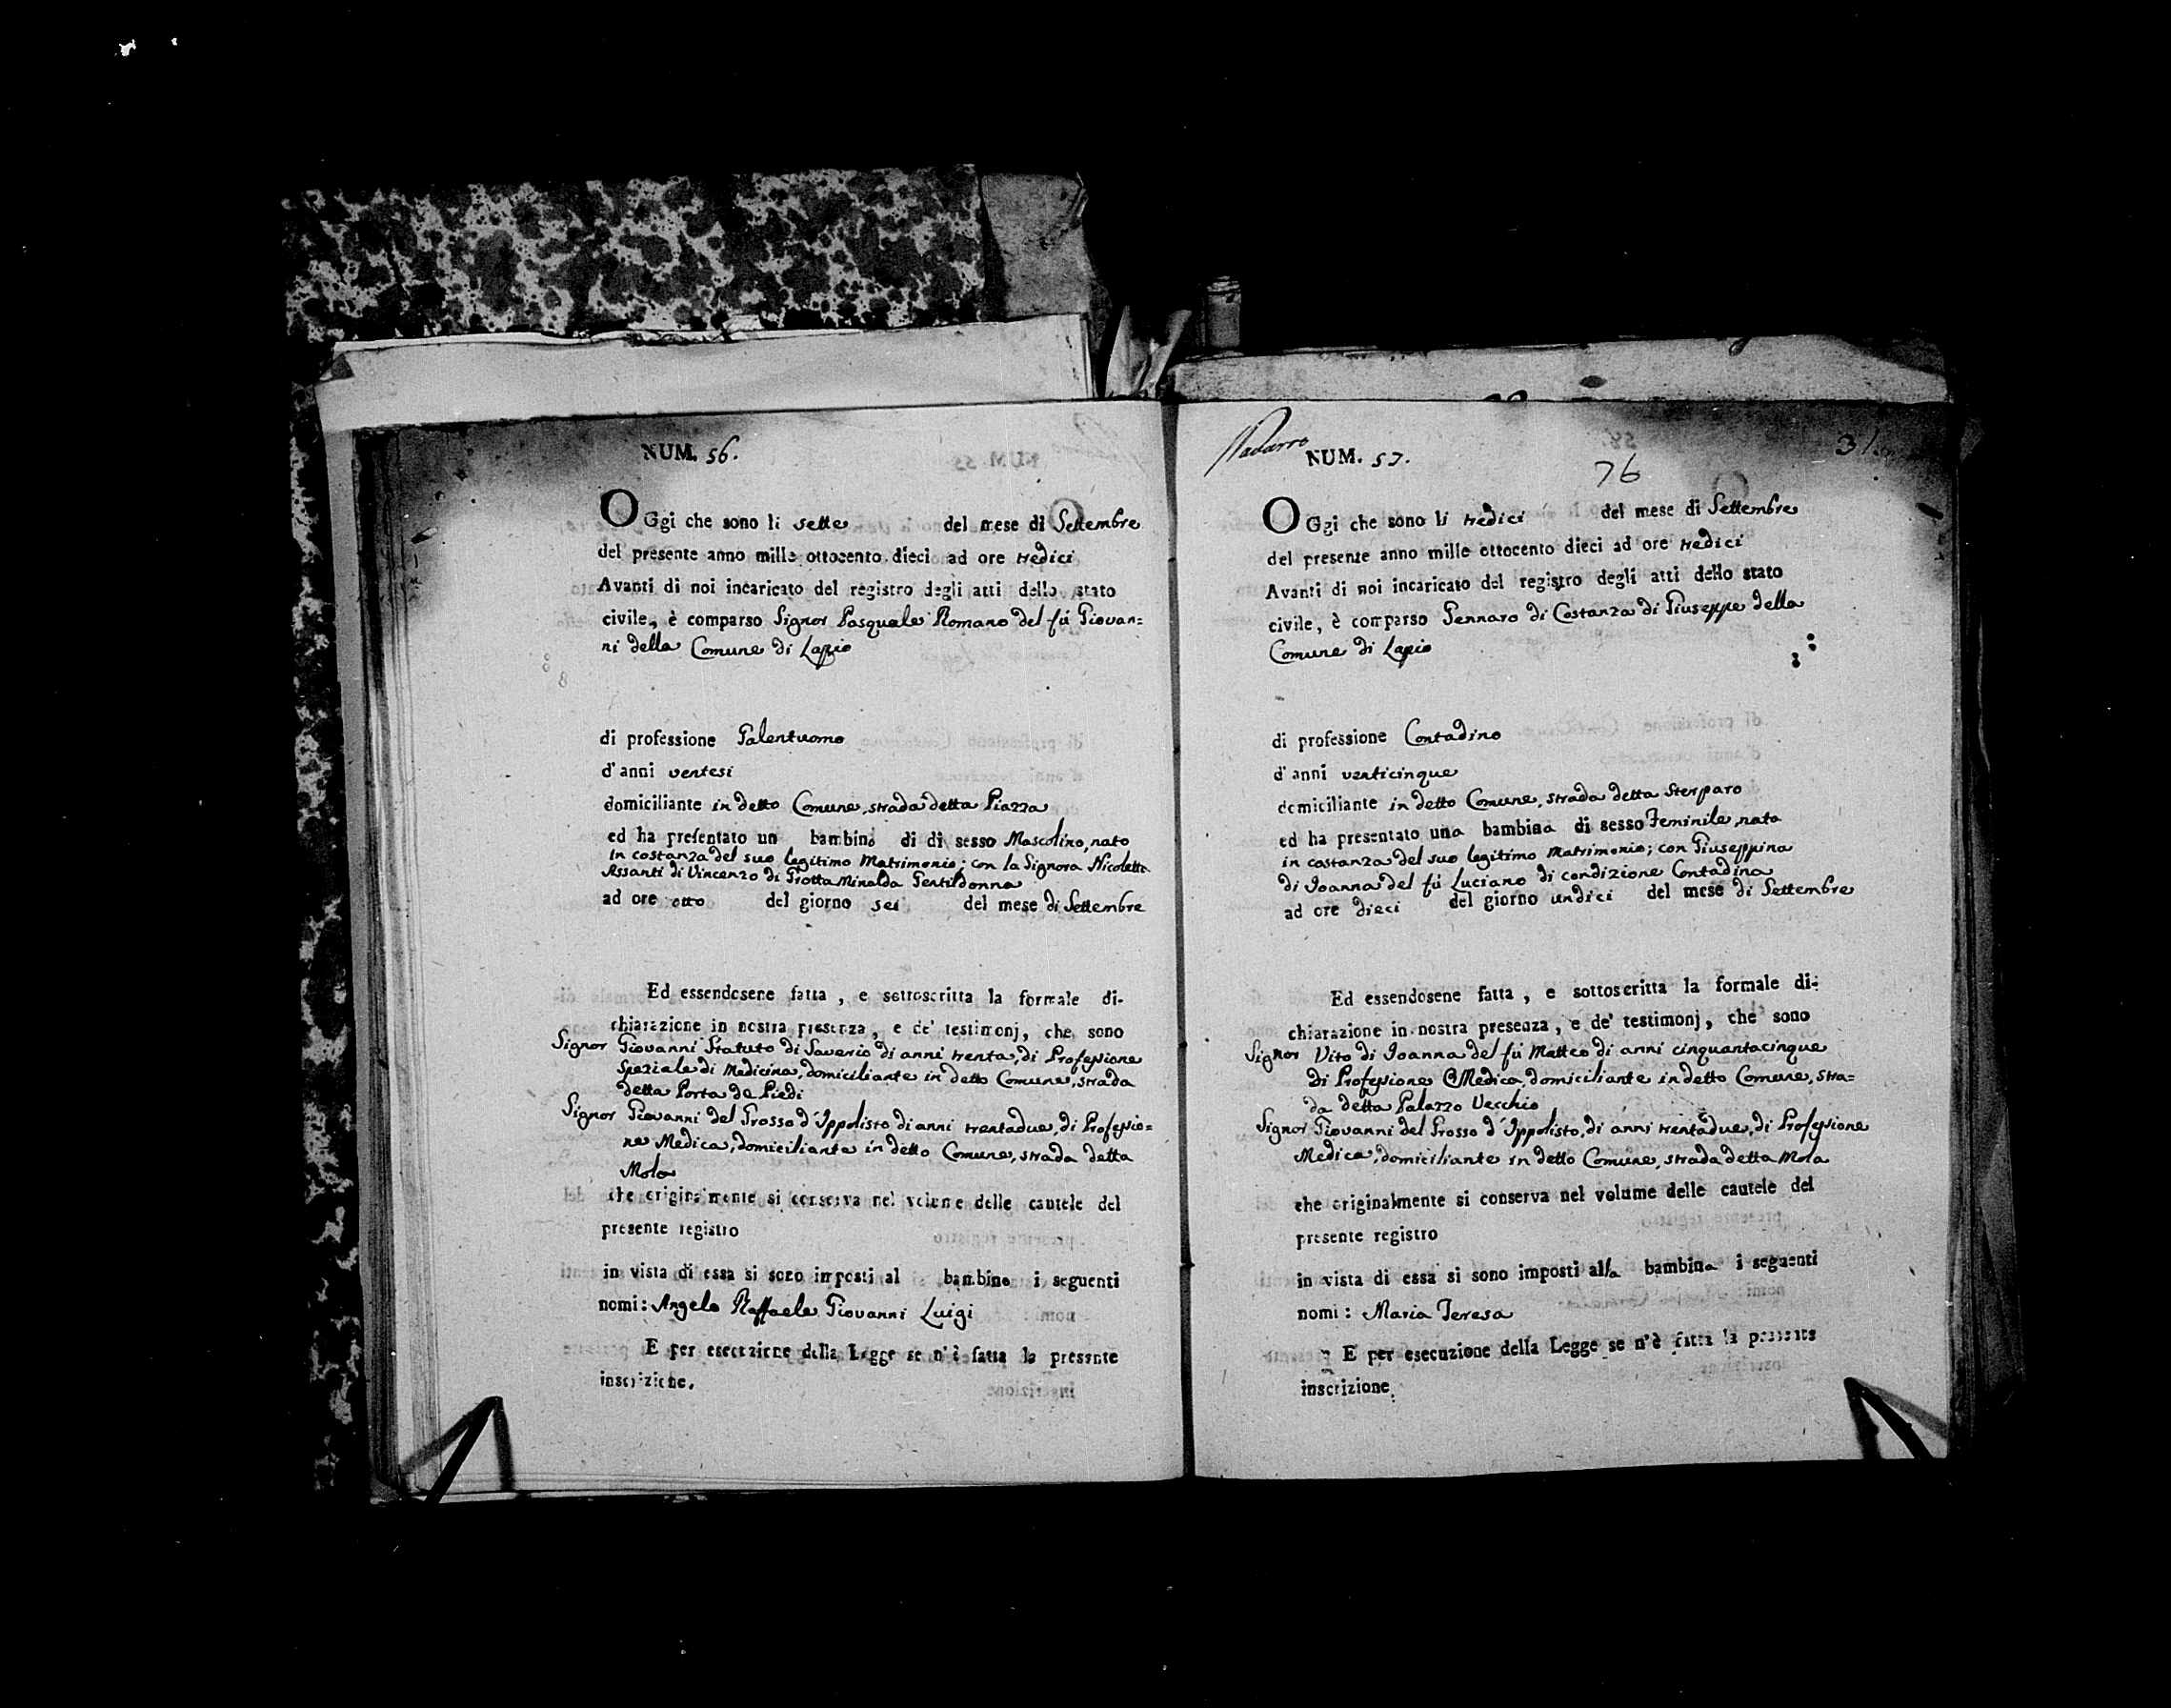 NUM. 56.
OGgi che sono li sette del mese di Settembre
del presente anno mille ottocento dieci ad ore tredici
Avanti di noi incaricato del registro degli atti dello stato
civile, è comparso Signor Pasquale Romano del fù Giovan=
ni della Comune di Lapio
di professione Galentuomo
d'anni ventesi
domiciliante in detto Comune, strada detta Piazza
ed ha presentato un bambino di di sesso Mascolino, nato
in costanza del suo legitimo Matrimonio; con la Signora Nicoletta
Assanti di Vincenzo di Grotta Minalda Gentildonna
ad ore otto del giorno sei del mese di Settembre
Ed essendosene fatta, e sottoscritta la formale di-
chiarazione in nostra presenza, e de' testimonj, che sono
Signor Giovanni Statuto di Saverio di anni trenta, di Professione
Speziale di Medicina, domiciliante in detto Comune, strada
detta Porta de Piedi
Signor Giovanni del Grosso d'Ippolisto di anni trentadue, di Professio=
ne Medica, domiciliante in detto Comune, strada detta
Mola
che originalmente si conserva nel volume delle cautele del
presente registro
in vista di essa si sono imposti al bambino i seguenti
nomi: Angelo Raffaele Giovanni Luigi
E per esecuzione della Legge se n'è fatta la presente
inscrizione.
NUM. 57.
76
OGgi che sono li tredici del mese di Settembre
del presente anno mille ottocento dieci ad ore tredici
Avanti di noi incaricato del registro degli atti dello stato
civile, è comparso Gennaro di Costanza di Giuseppe della
Comune di Lapio
di professione Contadino
d'anni venticinque
domiciliante in detto Comune, strada detta Sterparo
ed ha presentato una bambina di sesso Feminile, nata
in costanza del suo legitimo Matrimonio; con Giuseppina
di Ioanna del fù Luciano di condizione Contadina
ad ore dieci del giorno undici del mese di Settembre
Ed essendosene fatta, e sottoscritta la formale di-
chiarazione in nostra presenza, e de' testimonj, che sono
Signor Vito di Ioanna del fù Matteo di anni cinquantacinque
di Professione Medica, domiciliante in detto Comune, stra=
da detta Palazzo Vecchio
Signor Giovanni del Grosso d'Ippolisto, di anni trentadue, di Professione
Medica, domiciliante in detto Comune, strada detta Mola
che originalmente si conserva nel volume delle cautele del
presente registro
in vista di essa si sono imposti alla bambina i seguenti
nomi: Maria Teresa
E per esecuzione della Legge se n'è fatta la presente
inscrizione.